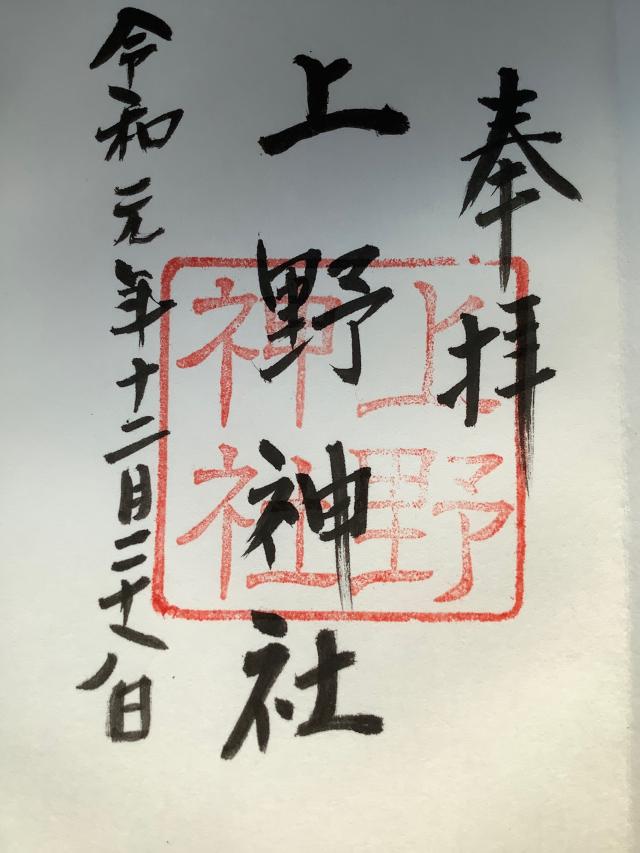 奉拝
上野神社
上野
神社
令和元年十二月二十八日